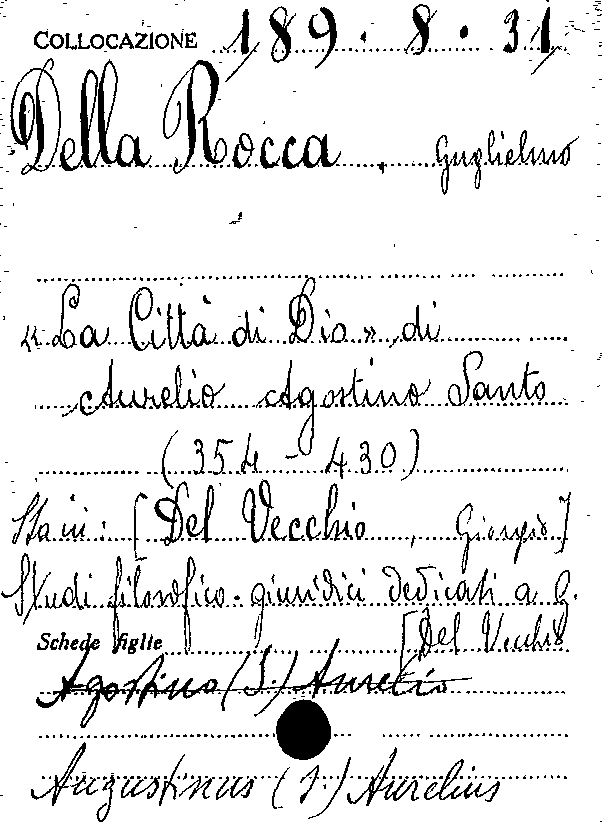 COLLOCAZIONE 189.8.31
Della Rocca, Guglielmo
«La Città di Dio» di
Aurelio Agostino Santo
(354-430)
Sta in: [Del Vecchio, Giorgio]
Studi filosofico-giuridici dedicati a G.
[Del Vecchio
Schede figlie
Agostino (S.) Aurelio
Augustinus (S.) Aurelius